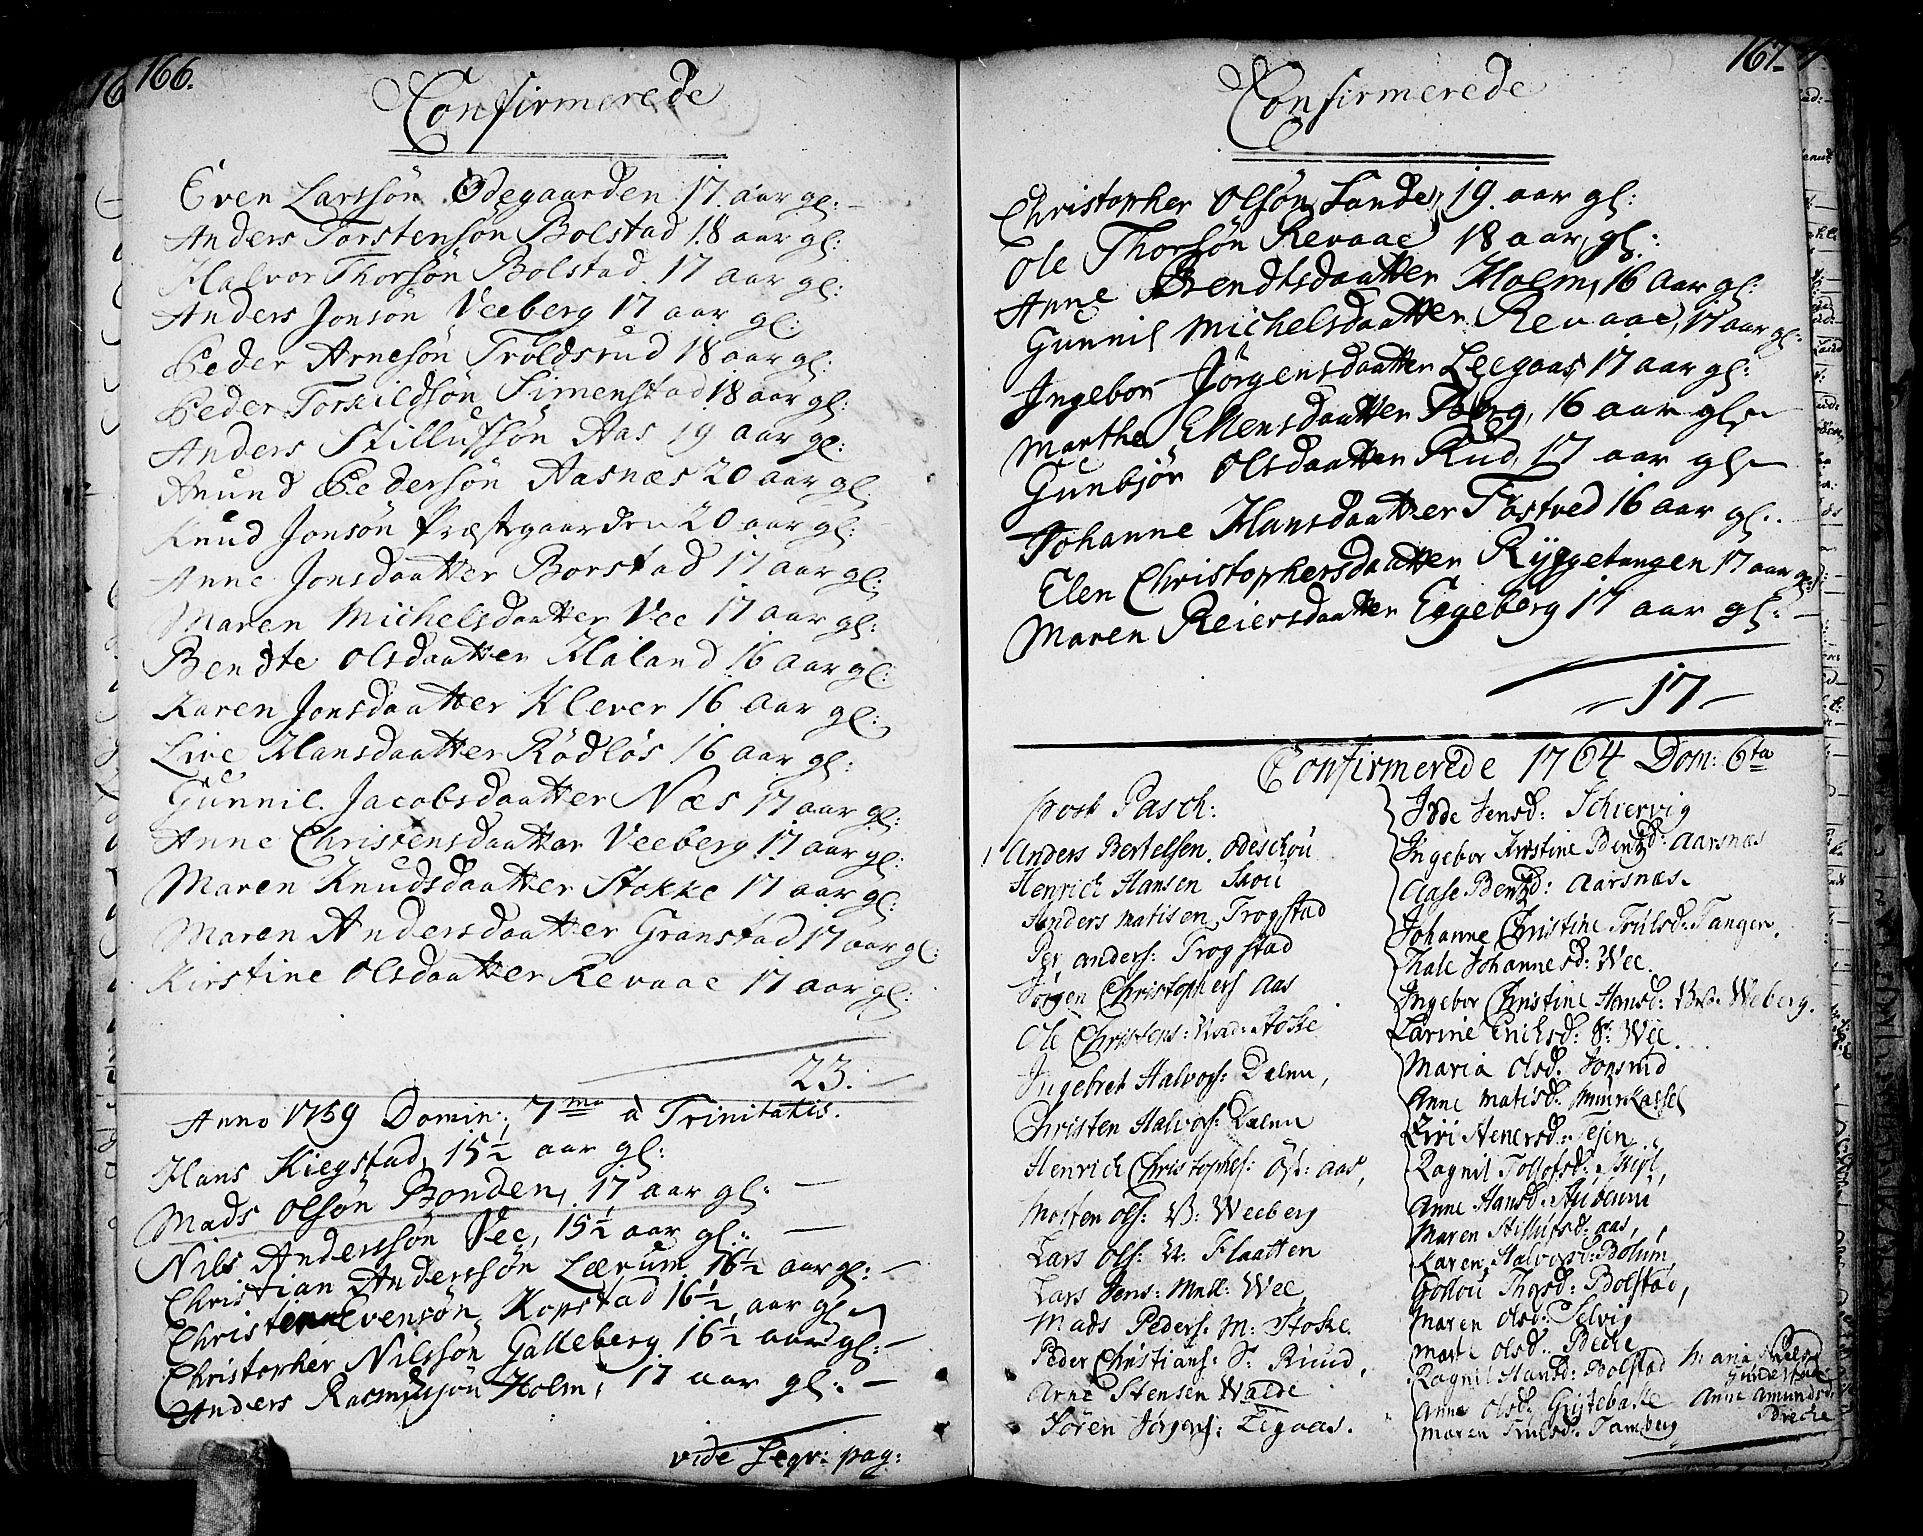 166.
Confirmerede
Even Larssøn Ødegaarden 17 aar gl:
Anders Torstensøn Bolstad 18 aar gl:
Halvor Thorsøn Bolstad 17 aar gl:
Anders Jonsøn Veeberg 17 aar gl:
Peder Arnesøn Troldsrud 18 aar gl:
Peder Torkildsøn Simenstad 18 aar gl:
Anders Stillufsøn Aas 19 aar gl:
Anund Pedersøn Aasnæs 20 aar gl
Knud Jonsøn Præstgaarden 20 aar gl:
Anne Jonsdaatter Borstad 17 aar gl:
Maren Michelsdaatter Vee 17 aar gl:
Bendte Olsdaatter Haland 16 aar gl:
Karen Jonsdaatter Klever 16 aar gl:
Live Hansdaatter Rødløs 16 aar gl:
Gunnil Jacobsdaatter Næs 17 aar gl:
Anne Christensdaatter Veeberg 17 aar gl:
Maren Knudsdaatter Stokke 17 aar gl:
Maren Andersdaatter Granstad 17 aar gl:
Kirstine Olsdaatter Revaae 17 aar gl:
23.
Anno 1759 Domin: 7ma à Trinitatis.
Hans Kiegstad, 15½ aar gl:
Mads Olsøn Bonden, 17 aar gl:
Nils Anderssøn Vee, 15½ aar gl:
Christian Anderssøn Lærum 16½ aar gl:
Christen Evensøn Kopstad 16½ aar gl
Christopher Nilssøn Galleberg 16½ aar gl:
Anders Rasmussøn Holm, 17 aar gl:
vide Seqv: pag:
167.
Confirmerede
Christopher Olsøn Sande, 19. aar gl:
Ole Thorsøn Revaae 18 aar gl:
Anne Bendtsdaatter Holm, 16 aar gl:
Gunnil Michelsdaatter Revaae, 17 aar gl:
Ingebor Jørgensdaatter Leegaas 17 aar gl:
Marthe Ellensdaatter Berg, 16 aar gl
Gunbjør Olsdaatter Rud, 17 aar gl
Johanne Hansdaatter Tostved 16 aar gl:
Elen Christophersdaatter Ryggetangen 17 aar gl:
Maren Reiersdaatter Eggeberg 17 aar gl:
17
Confirmerede 1764 Dom: 6ta
post Pasch:
Anders Bertelsen
Henrich Hansen Skou
Anders Matisen Trogstad
Per Anders: Trogstad
Jørgen Christophers Aas
Ole Christens: Stoke
Ingebret Halvors: Dalen,
Christen Halvors: Dalen
Henrich Christophes: Øst: Aas,
Morten Ols: V: Weeberg
Lars Ols: N: Flaatten
Lars Jens: Mell: Wee
Mads Peders: M: Stoke
Peder Christians: S: Ruud,
Arne Stensen Walde
Søren Jørgens: Legaas.
Jøde Jensd: Schiervig
Ingebor Kirstine Bentzd: Aarsnæs
Aase Bentzd: Aarsnæs.
Johanne Christine Trulsd: Tangen.
Thale Johannesd: Wee.
Ingebor Christine Hansd: Weberg.
Larine Erichsd: S: Wee.
Maria Olsd: Jonsrud
Anne Matisd: Murkassel
Livi Stenersd: Tejen
Ragnil Tollofsd:
Anne Hansd:
Maren Stillufsd: Aas,
Karen Halvorsd: Bolum,
Thorsd: Bolstad,
Maren Olsd: Selvig
Marte Olsd: Beche
Ragnil Hansd: Bolstad
Anne Olsd: Grytebake
Maren Trulsd: Tamberg
Maria Nilsd
Anne Amundsd:
Breche